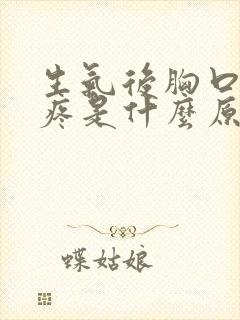 生氣後胸口
疼是什麼原
蝶姑娘